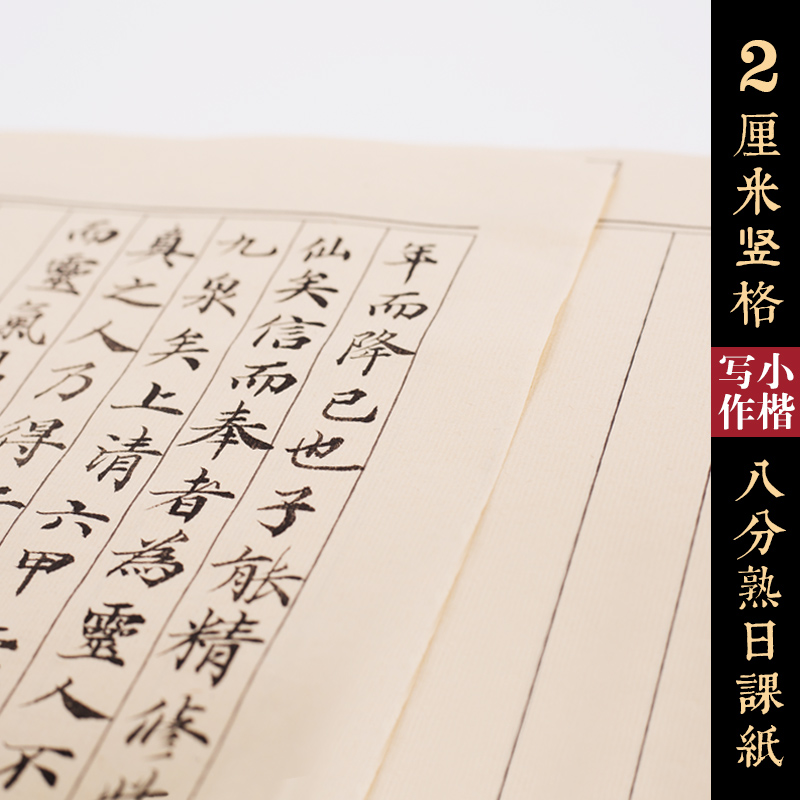 年而降己也子能精修
仙矣信而奉者為靈人不
九泉矣上清六甲
真之人乃得
而靈氣
2厘米竖格
小楷
写作
八分熟日課紙